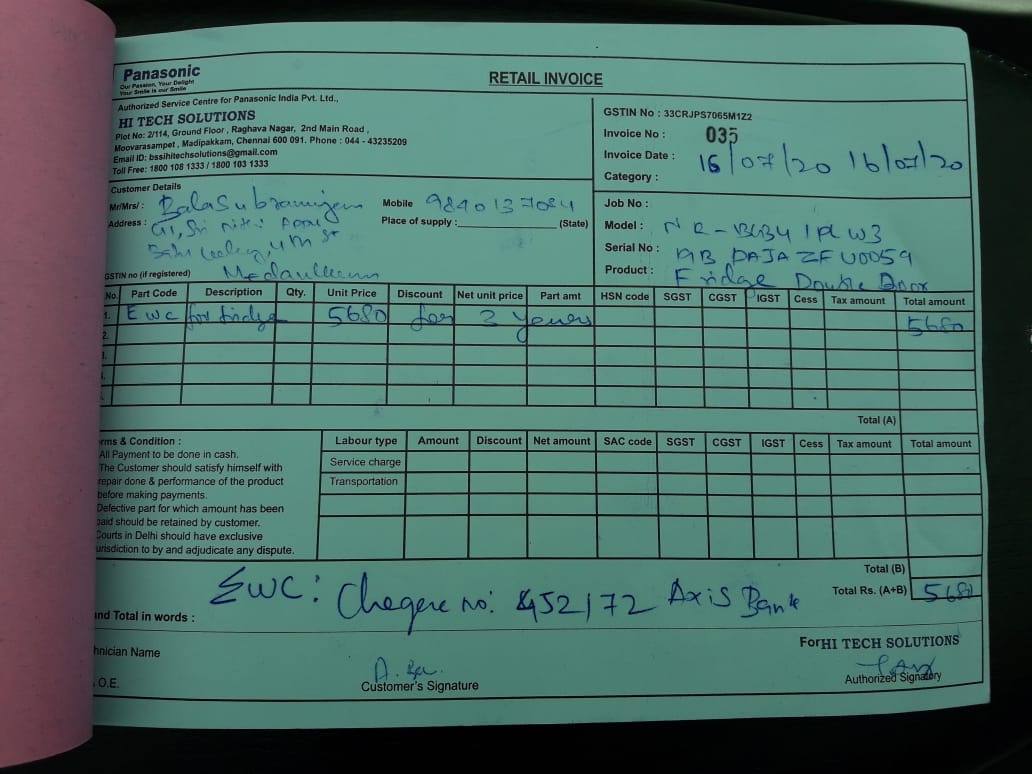 Panasonic
Our Passion, Your Delight
Your Smile is our Smile
RETAIL INVOICE
Authorized Service Centre for Panasonic India Pvt. Ltd.,
HI TECH SOLUTIONS
Plot No: 2/114, Ground Floor, Raghava Nagar, 2nd Main Road,
Moovarasampet, Madipakkam, Chennai 600 091. Phone : 044 - 43235209
Email ID: bssihitechsolutions@gmail.com
Toll Free: 1800 108 1333 / 1800 103 1333
GSTIN No : 33CRJPS7065M1Z2
Invoice No : 035
Invoice Date : 16/07/20 16/07/20
Category :
Customer Details
Mr/Mrs/ : Balasubramiyem Mobile 9840137084
Address : Place of supply : (State)
GSTIN no (if registered)
Job No :
Model : NR-BG341PLW3
Serial No :
Product : Fridge Double Door
No. Part Code Description Qty. Unit Price Discount Net unit price Part amt HSN code SGST CGST IGST Cess Tax amount Total amount
1. EWC for fridge 5680 for 3 years 5680
2.
Total (A)
rms & Condition :
All Payment to be done in cash.
The Customer should satisfy himself with
repair done & performance of the product
before making payments.
Defective part for which amount has been
paid should be retained by customer.
Courts in Delhi should have exclusive
urisdiction to by and adjudicate any dispute.
Labour type Amount Discount Net amount SAC code SGST CGST IGST Cess Tax amount Total amount
Service charge
Transportation
Total (B)
Total Rs. (A+B) 5680
EWC: Cheqere no: 452172 Axis Bank
and Total in words :
For HI TECH SOLUTIONS
hnician Name
O.E.
Customer's Signature
Authorized Signatory